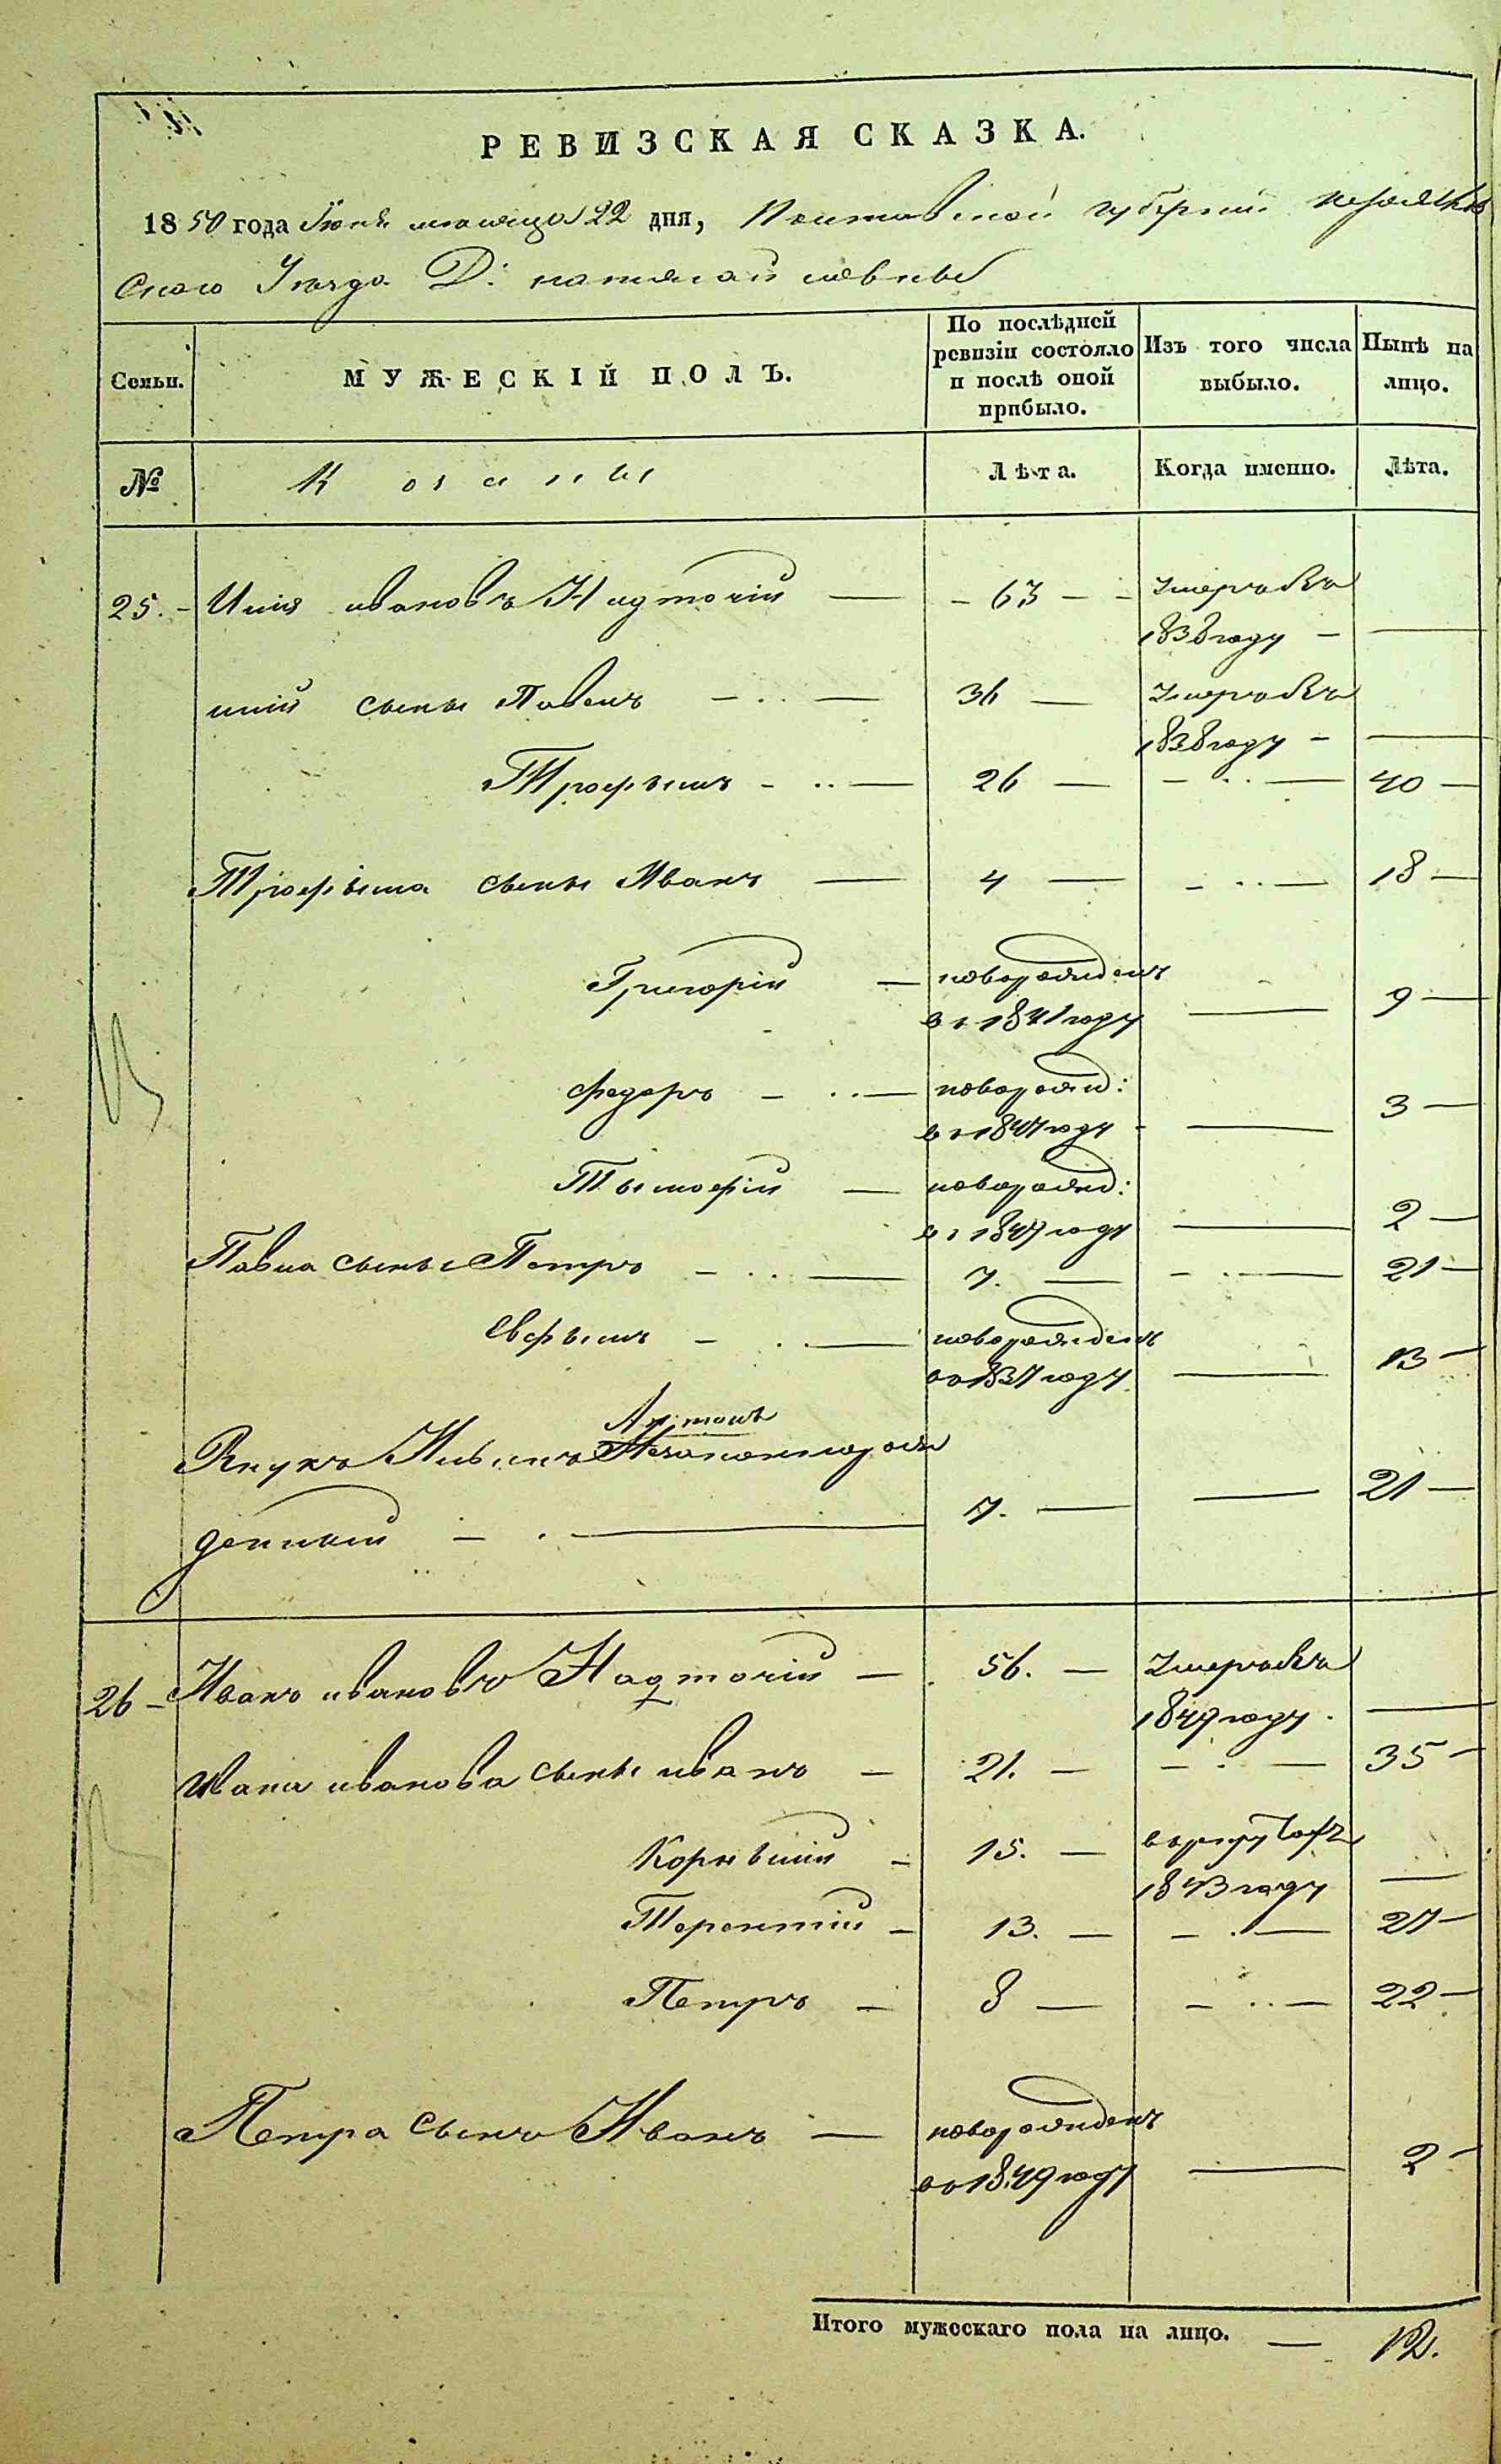 РЕВИЗСКАЯ СКАЗКА.
1850 года Июня месяца 22 дня, Полтавской губернии
ского Уезда Д:
Семьи.
МУЖЕСКІЙ ПОЛЪ.
По послѣдней ревизіи состояло и послѣ оной прибыло.
Изъ того числа выбыло.
Нынѣ на лицо.
№
Козаки
Лѣта.
Когда именно.
Лѣта.
25. Илія ивановъ Надточій — 63 — умеръ въ
1838 году —
иліи сыны Павелъ — 36 — умеръ въ
1838 году —
Трофымъ — 26 — 40 —
Трофыма сыны Иванъ — 4 — 18 —
Григорій — новорожденъ
въ 1841 году — 9 —
Федоръ — новорожд:
въ 1847 году — 3 —
Тымофій — новорожд:
въ 184 году — 2 —
Павла сыны Петръ — 7. — 21 —
Евфымъ — новорожденъ
въ 1837 году — 13 —
Антонъ
Внукъ незаконнорож
денный — 7. — 21 —
26 Иванъ ивановъ Надточій — 56. — умеръ въ
1849 году.
Ивана иванова сыны иванъ — 21. — 35 —
Корнылій — 15. — в рекруты
1843 году —
Терентій — 13. — 27 —
Петръ — 8 — 22 —
Петра сынъ Иванъ — новорожденъ
въ 1849 году — 2 —
Итого мужескаго пола на лицо. — 12.